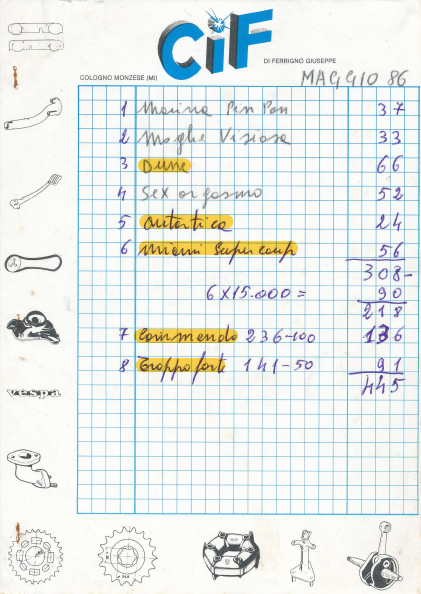 CiF
DI FERRIGNO GIUSEPPE
COLOGNO MONZESE (MI)
MAGGIO 86
1 Marina Pin Pon 37
2 Moglie Visiosa 33
3 Dune 66
4 Sex orgasmo 52
5 Antartica 24
6 Miami Supercoup 56
308-
6 X 15.000 = 90
218
7 Commando 236-100 136
8 Troppo forte 141-50 91
445
vespa